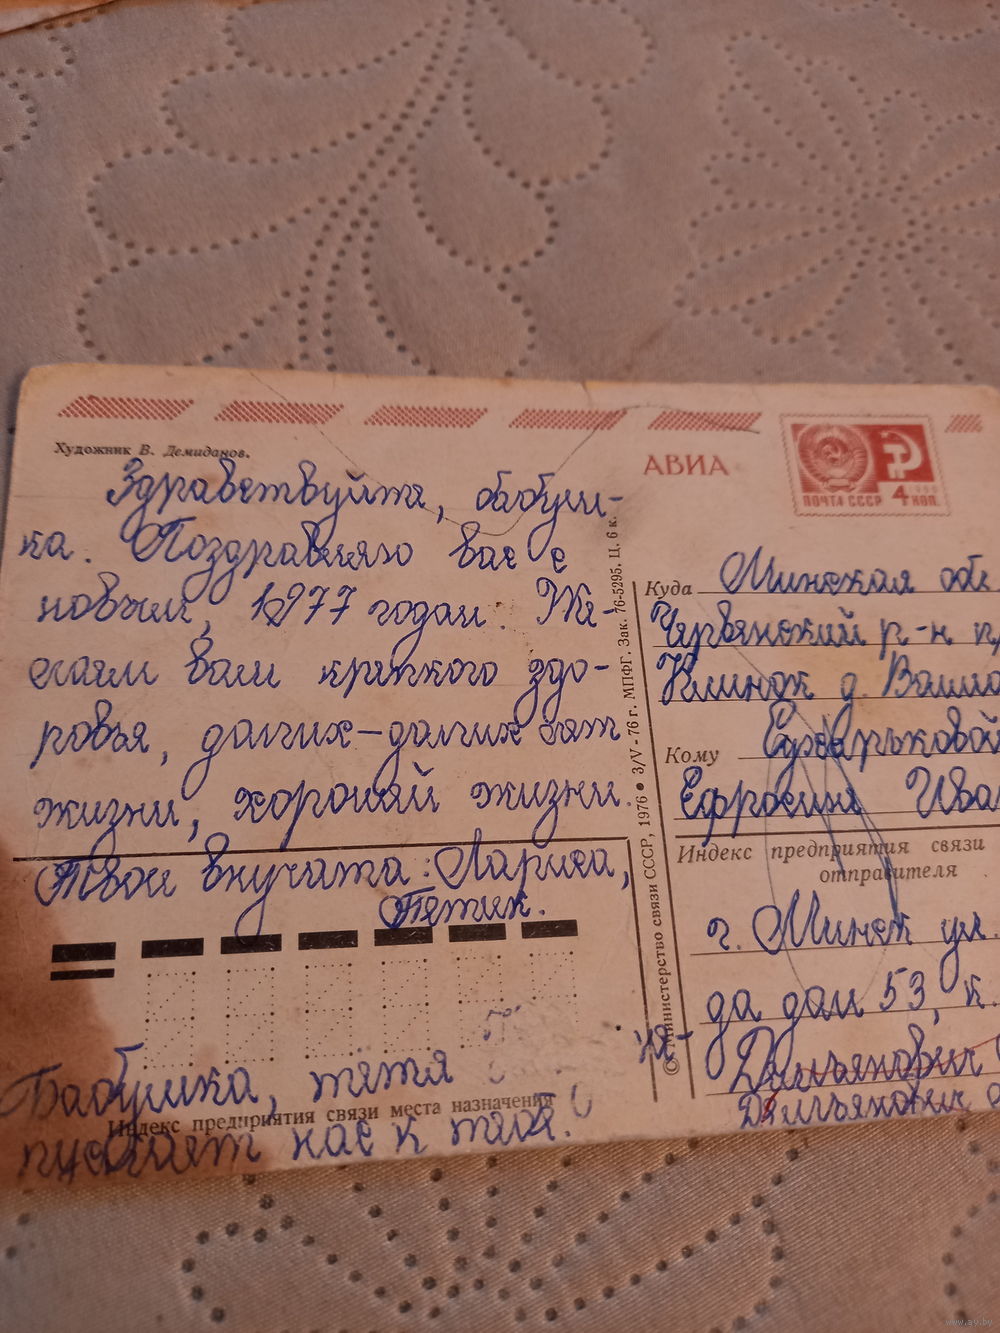 Художник В. Демиданов.
Здравствуйте, бабуш-
ка. Поздравляю вас с
новым, 1977 годом. Же-
лаем вам крепкого здо-
ровья, долгих-долгих лет
жизни, хорошей жизни.
Твои внучата: Лариса,
Петик.
Бабушка, тётя
не
пускает нас к тебе.
Индекс предприятия связи места назначения
© Министерство связи СССР, 1976 ● 3/V - 76 г. МПФГ. Зак. 76-5295. Ц. 6 к.
АВИА
ПОЧТА СССР 4 КОП.
1966
Куда Минская обл
Червенский р-н п
Клинок д.
Кому
Ефросинье
Индекс предприятия связи
отправителя
г. Минск ул.
да дом 53, к.
Демьянович
Демьянович
www.ay.by